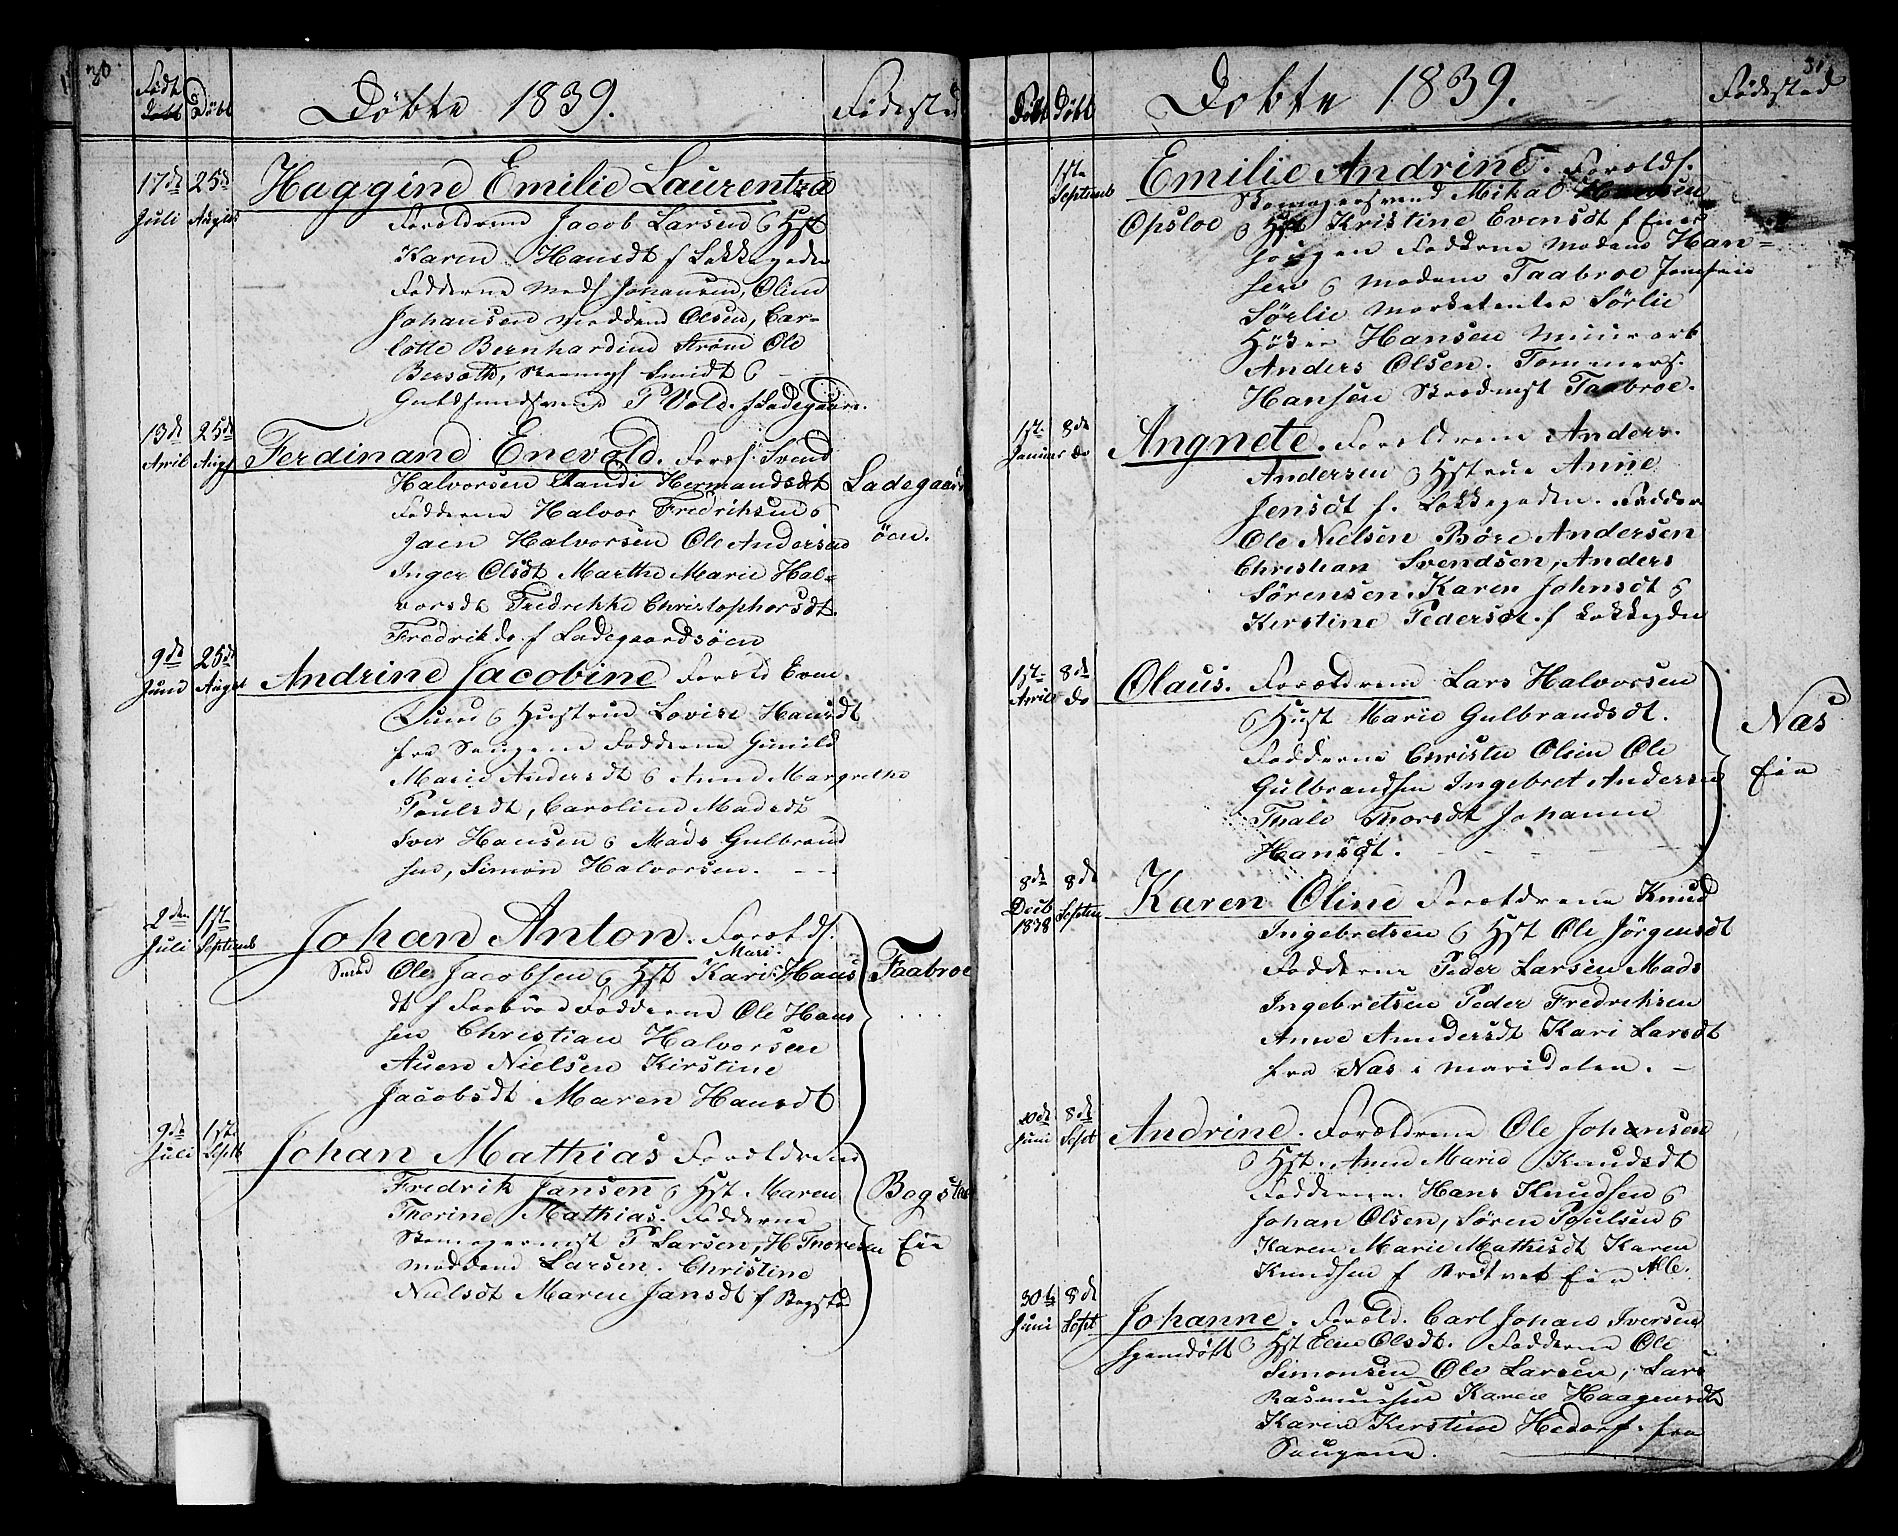 30
Født
Døbt
Døbte 1839.
Fødested
17de
Juli
25de
August
Haagine Emilie Laurentza
Forældrene Jacob Larsen & Hst
Karen Hansdt f Løkkegaden
Fadderne Mads Johansen, Oline
Johansen Madden Olsen, Car-
lotte Bernhardine Strøm Ole
Smidt &
P Vold. f Ladegaarn.
13de
April
25de
Augs
Ferdinand Enevold. Foræl. Svend
Halvorsen Randi Hermandsdt
Fadderne Halvor Fredriksen &
Halvorsen Ole Andersen
Inger Olsdt Marthe Marie Hal-
vorsdt Fredrikke Christophersdt
Fredrik do f Ladegaardsøen
Ladegaards
öen.
9de
Juni
25de
August
Andrine Jacobine Foræld Even
Lund & Hustrue Lovise Hansdt
fra Saugene Fadderne Gunild
Marie Andersdt & Anne Margrethe
Poulsdt, Caroline Madsdt
Iver Hansen & Mads Gulbrand
sen, Simon Halvorsen.
2den
Juli
1ste
Septemb
Johan Anton. Forælds.
Mari
Smed Ole Jacobsen & Hst Kari Hans
dt f Fadderne Ole Han
sen Christian Halvorsen
Nielsen Kirstine
Jacobsdt Maren Hansdt
Taabroe
9de
Juli
1ste
Septb
Johan Mathias Forældrene
Fredrik Jansen & Hst Maren
Thorine Mathias. Fadderne
Skomagermst P Larsen, H Thoresen
Maddend Larsen. Christine
Nielsdt Maren Jansdt f Bogstad
Bogstad
Eie
31
Født
Døbt
Døbte 1839.
Fødested
1ste
Septemb
Emilie Andrine. Forælds.
Skomagersvend Mikal Hansen
Opsloe & Hst Kristine Evensdt f Eier
Fadderne Madame Han-
sen & Madame Taabroe Jomfrue
Sørlie Marketenter Sørlie
Høker Hansen Muurarb
Anders Olsen. Tømmers.
Hansen Skredmst Taabroe.
1ste
Januar
8de
do
Angnete. Forældrene Anders
Andersen & Hstrue Anne
Jensdt f. Løkkegaden. Fadder
Ole Nielsen Børe Andersen
Christian Svendsen, Anders
Sørensen. Karen Johnsdt &
Kirstine Pedersdt. f Løkkegden
1ste
April
8de
do
Olaus. Forældrene Lars Halvorsen
& Hust Marie Gulbrandsdt.
Fadderne Christen Olsen Ole
Gulbrandsen Ingebret Andersen
Thale Thorsdt Johanne
Hansdt.
Nas
Eie
8de
Decb
1838
8de
Septem
Karen Oline Forældrene Knud
Ingebretsen & Hst Ole Jørgensdt
Fadderne Peder Larsen Mads
Ingebretsen Peder Fredriksen
Anne Amdersdt Kari Larsdt
fra Nas i Maridalen.
20de
Juni
8de
Sept
Andrine. Forældrene Ole Johansen
& Hst. Anne Marie Knudsdt
Fadderne. Hans Knudsen &
Johan Olsen, Søren Poulsen &
Karen Marie Mathisdt Karen
Knudsen f Brdtvet Eie
30te
Juni
8de
Sept
Johanne. Foræld. Carl Johan Iversen
& Hst Elen Olsdt. Fadderne Ole
Simonsen Ole Larsen, Lars
Rasmussen Karen Haagensdt
Karen Kirstine Hedorf. fra
Saugene.